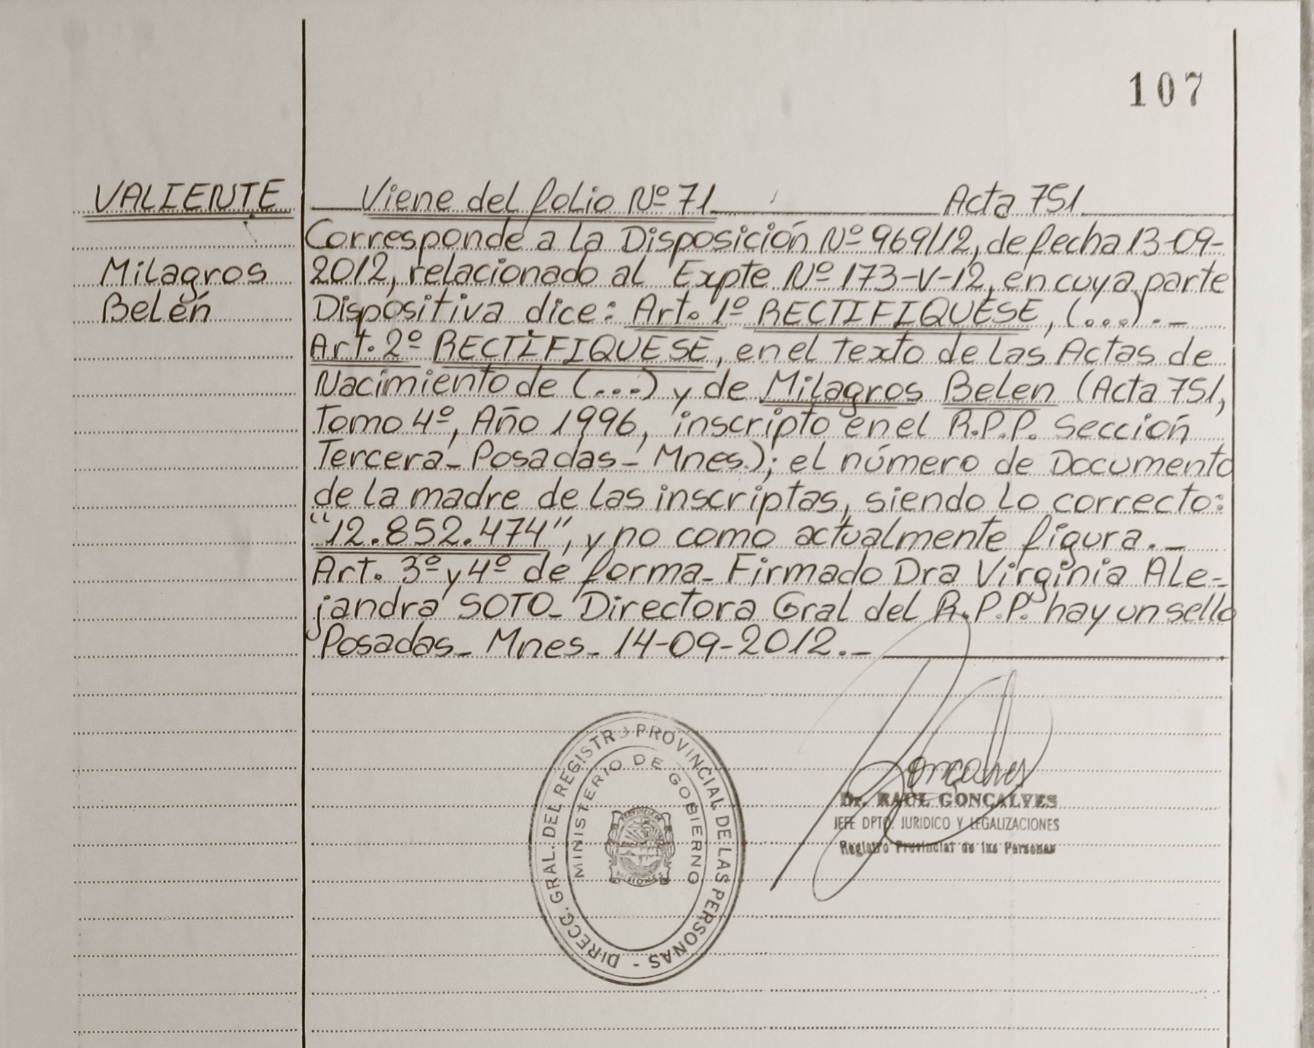 107
VALIENTE
Milagros
Belén
Viene del folio Nº 71 Acta 751
Corresponde a la Disposición Nº 969/12, de fecha 13-09-
2012, relacionado al Expte Nº 173-V-12, en cuya parte
Dispositiva dice: Art. 1º RECTIFIQUESE, (...).-
Art. 2º RECTIFIQUESE, en el texto de las Actas de
Nacimiento de (...) y de Milagros Belen (Acta 751,
Tomo 4º, Año 1996, inscripto en el R.P.P. Sección
Tercera- Posadas- Mnes.); el número de Documento
de la madre de las inscriptas, siendo lo correcto:
"12.852.474", y no como actualmente figura.-
Art. 3º y 4º de forma- Firmado Dra Virginia Ale-
jandra SOTO- Directora Gral del R.P.P. hay un sello
Posadas- Mnes- 14-09-2012.-
DIRECC. GRAL. DEL REGISTRO PROVINCIAL DE LAS PERSONAS -
MINISTERIO DE GOBIERNO
MISIONES
Goncalves
Dr. RAUL GONCALVES
JEFE DPTO. JURIDICO Y LEGALIZACIONES
Registro Provincial de las Personas